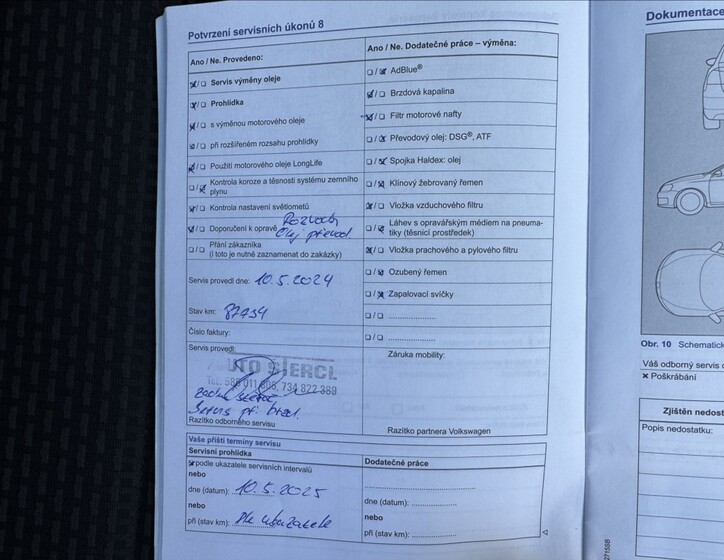 Potvrzení servisních úkonů 8
Ano / Ne. Provedeno:
Servis výměny oleje
Prohlídka
s výměnou motorového oleje
při rozšířeném rozsahu prohlídky
Použití motorového oleje LongLife
Kontrola koroze a těsnosti systému zemního
plynu
Kontrola nastavení světlometů
Doporučení k opravě Rozvody
Olej převod.
Přání zákazníka
(i toto je nutné zaznamenat do zakázky)
Servis provedl dne: 10.5.2024
Stav km: 87934
Číslo faktury:
Servis provedl:
AUTO SIERCL
734 822 389
Servis při
Razítko odborného servisu
Ano / Ne. Dodatečné práce – výměna:
AdBlue®
Brzdová kapalina
Filtr motorové nafty
Převodový olej: DSG®, ATF
Spojka Haldex: olej
Klínový žebrovaný řemen
Vložka vzduchového filtru
Láhev s opravářským médiem na pneuma-
tiky (těsnicí prostředek)
Vložka prachového a pylového filtru
Ozubený řemen
Zapalovací svíčky
Záruka mobility:
Razítko partnera Volkswagen
Vaše příští termíny servisu
Servisní prohlídka
podle ukazatele servisních intervalů
nebo
dne (datum): 10.5.2025
nebo
při (stav km): Dle ukazatele
Dodatečné práce
dne (datum):
nebo
při (stav km):
Dokumentace
Obr. 10 Schematick
Váš odborný servis
Poškrábání
Zjištěn nedost
Popis nedostatku: